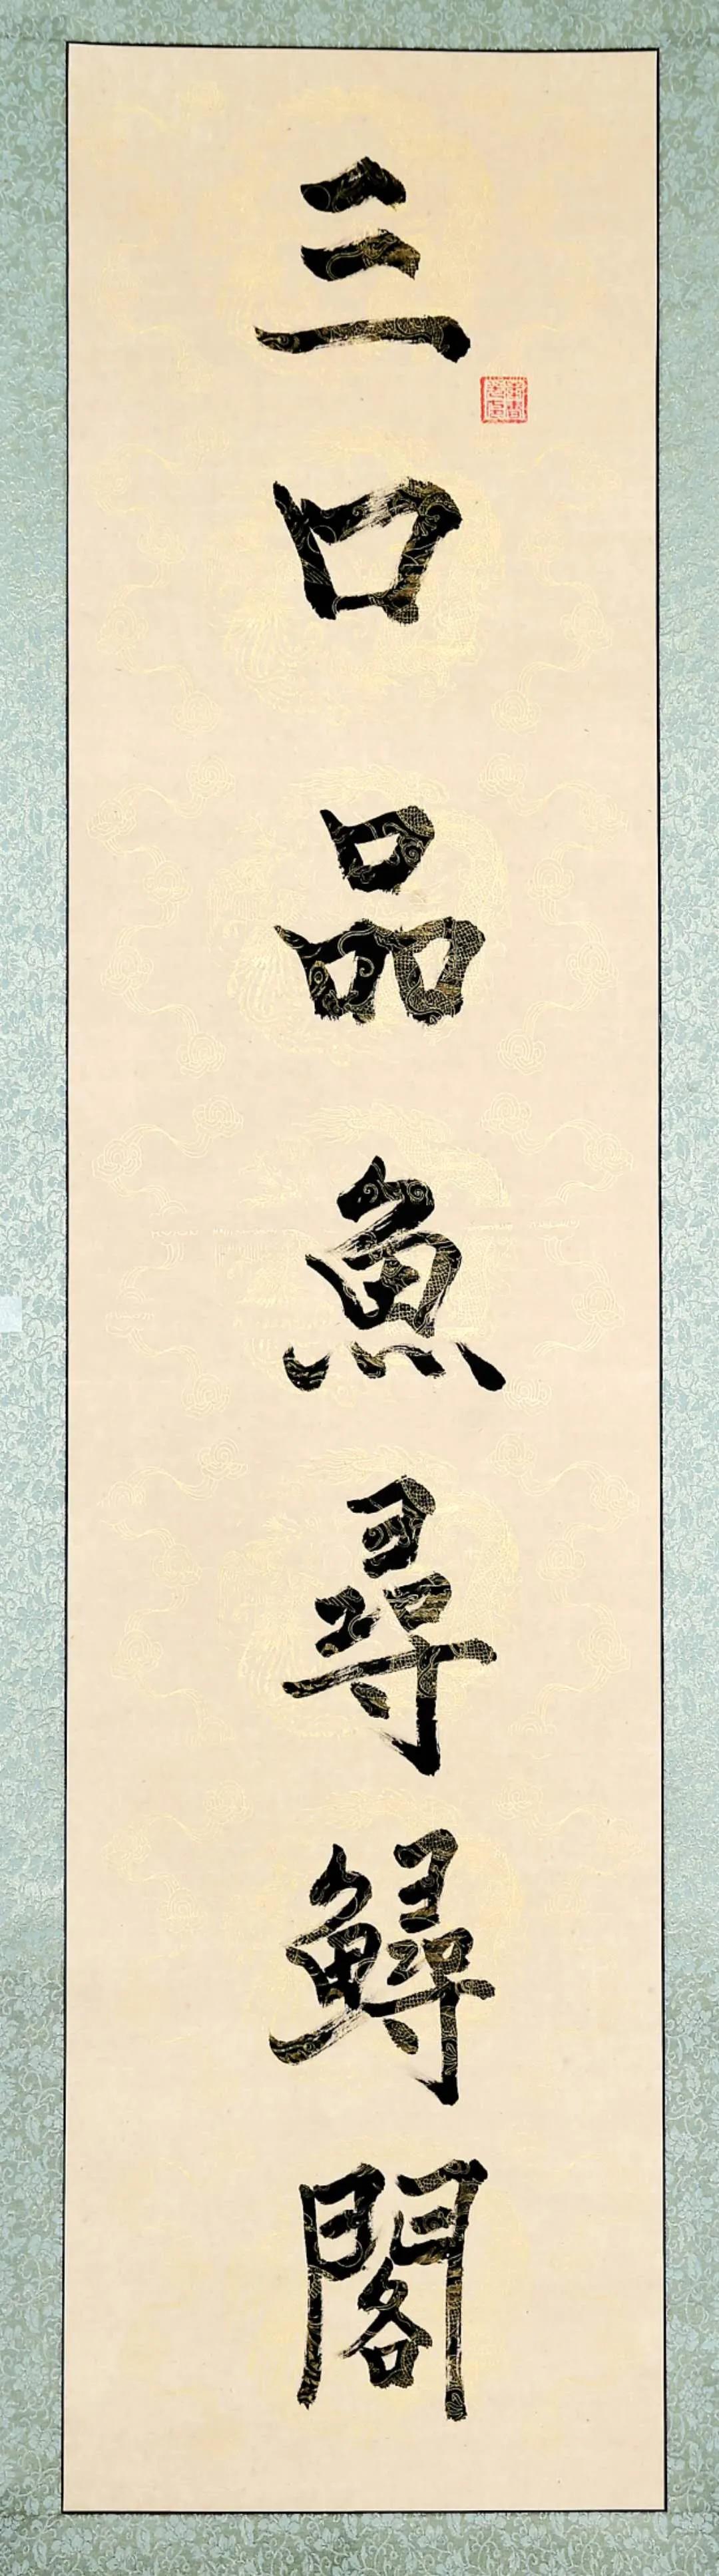 三口品魚尋鱘閣